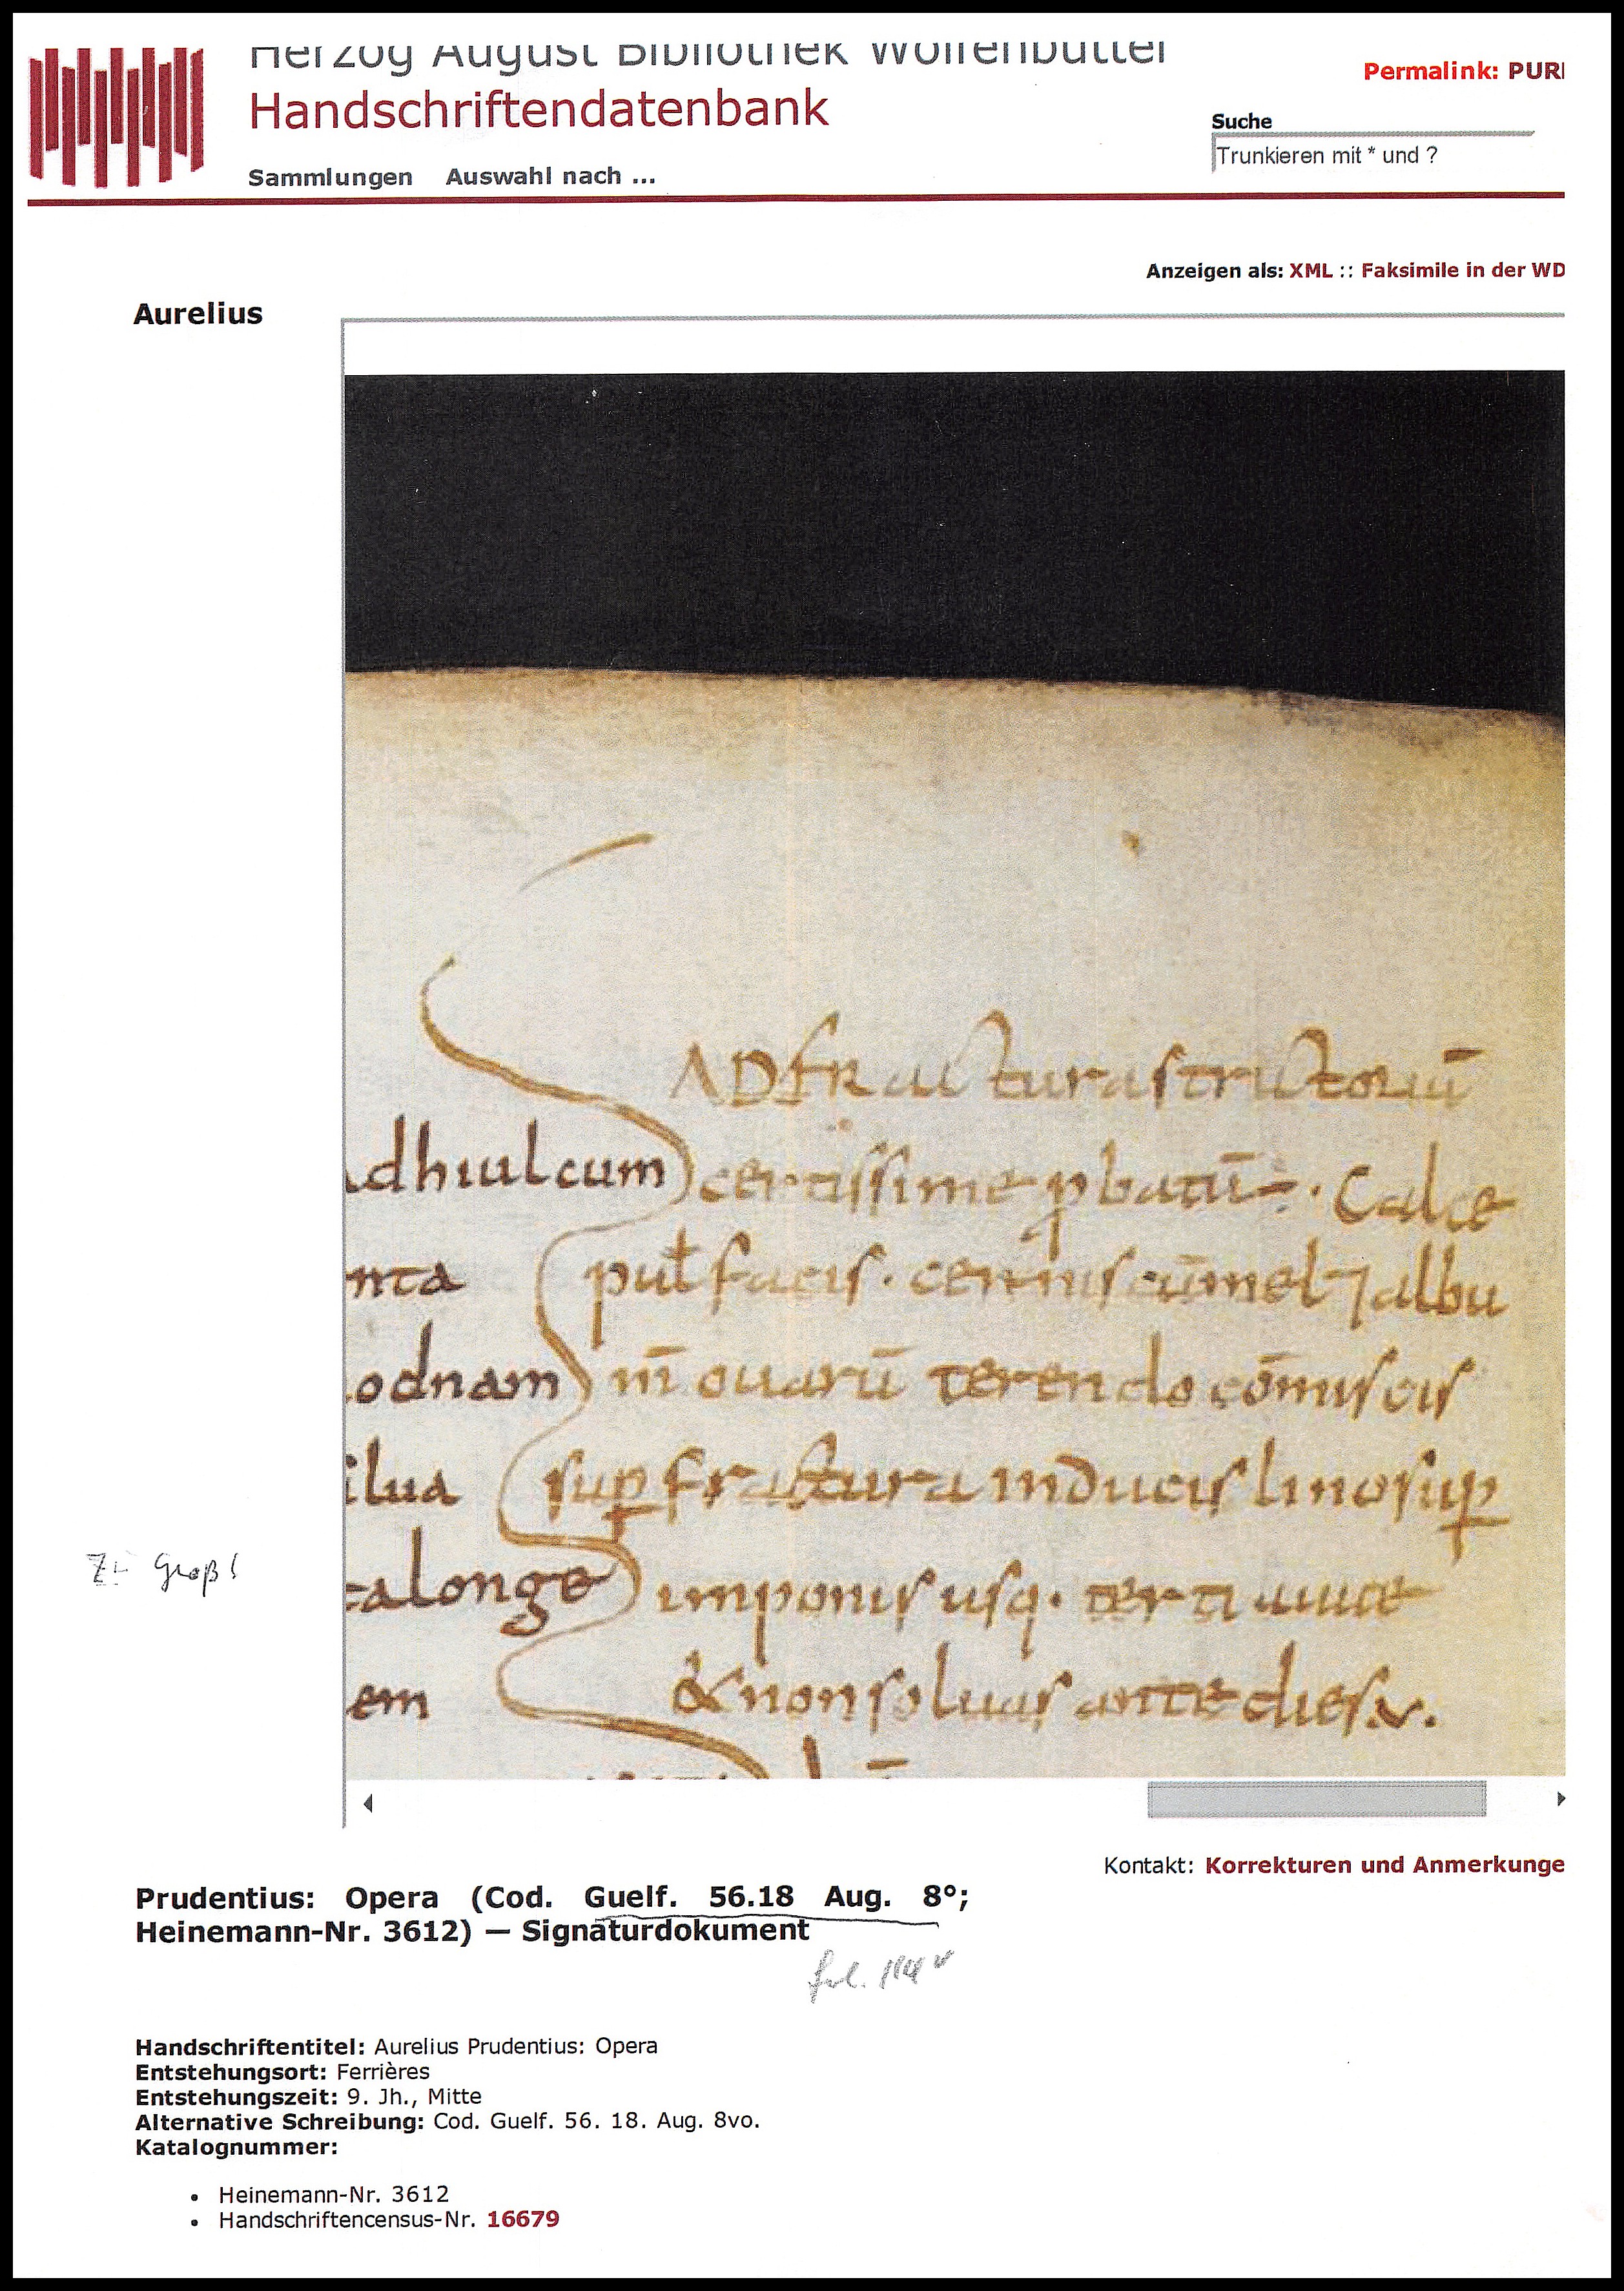 Herzog August Bibliothek Wolfenbüttel
Handschriftendatenbank
Permalink: PURL
Suche
Trunkieren mit * und ?
Sammlungen Auswahl nach ...
Anzeigen als: XML :: Faksimile in der WD
Aurelius
ADfracturastructoriū
dhiulcum certissime ꝓbatū÷. Calce
nta pul̵ facis. cū mel ⁊ albu
odnam m̄ ouarū terendo cōmiscis
ilua suꝑ fractura inducis lino suꝑ
talonge imponis usq.
em & non soluas ante dies.v.
Zu Groß!
Kontakt: Korrekturen und Anmerkunge
Prudentius: Opera (Cod. Guelf. 56.18 Aug. 8°;
Heinemann-Nr. 3612) — Signaturdokument
fol.
Handschriftentitel: Aurelius Prudentius: Opera
Entstehungsort: Ferrières
Entstehungszeit: 9. Jh., Mitte
Alternative Schreibung: Cod. Guelf. 56. 18. Aug. 8vo.
Katalognummer:
• Heinemann-Nr. 3612
• Handschriftencensus-Nr. 16679